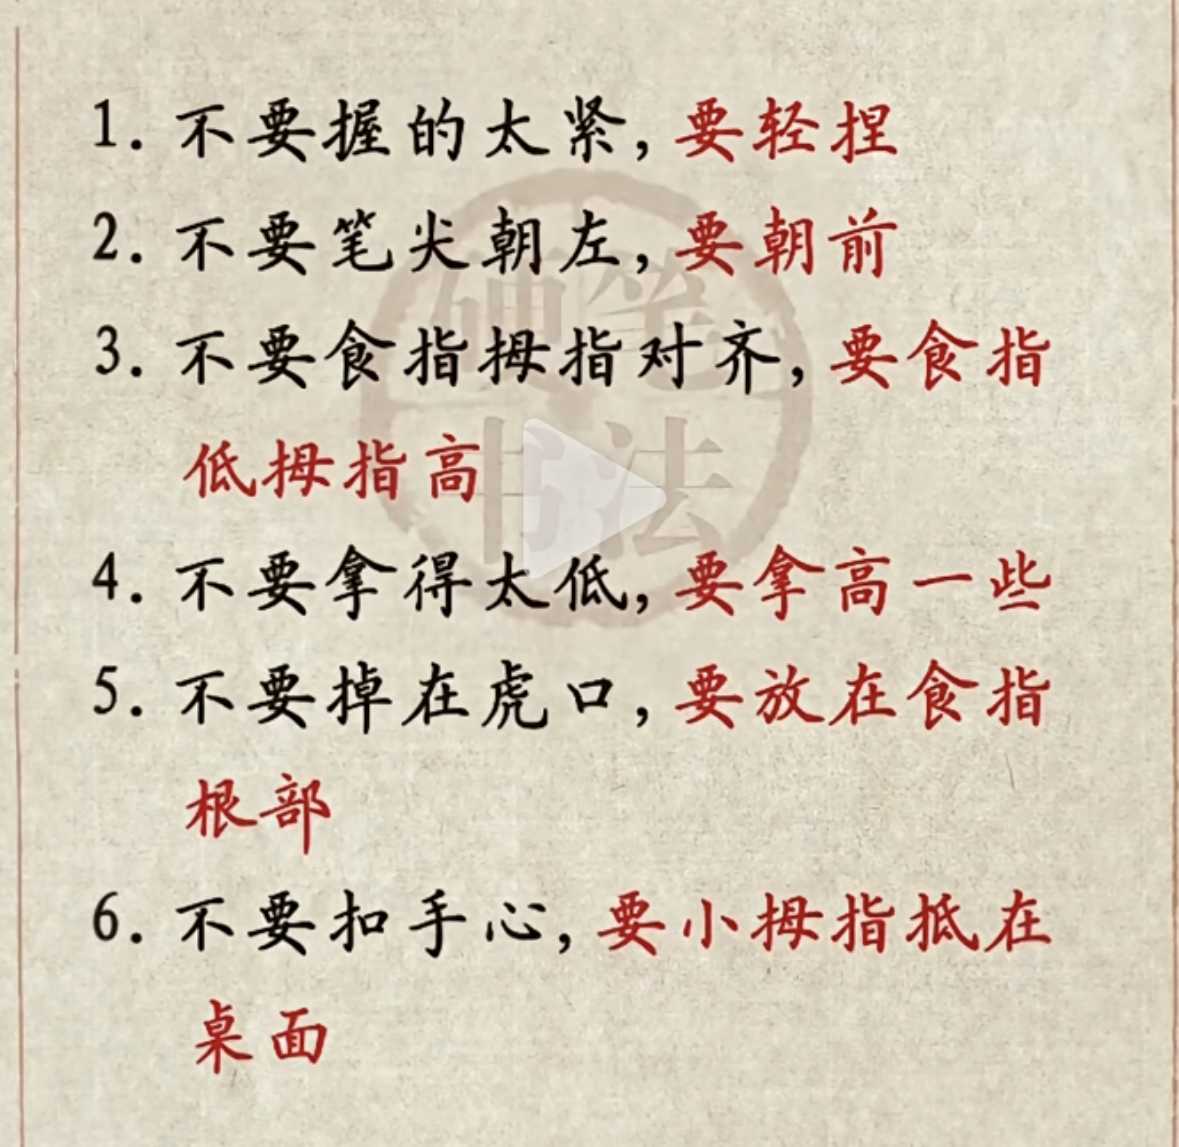 1. 不要握的太紧,要轻捏
2. 不要笔尖朝左,要朝前
3. 不要食指拇指对齐,要食指
低拇指高
4. 不要拿得太低,要拿高一些
5. 不要掉在虎口,要放在食指
根部
6. 不要扣手心,要小拇指抵在
桌面
硬笔
书法